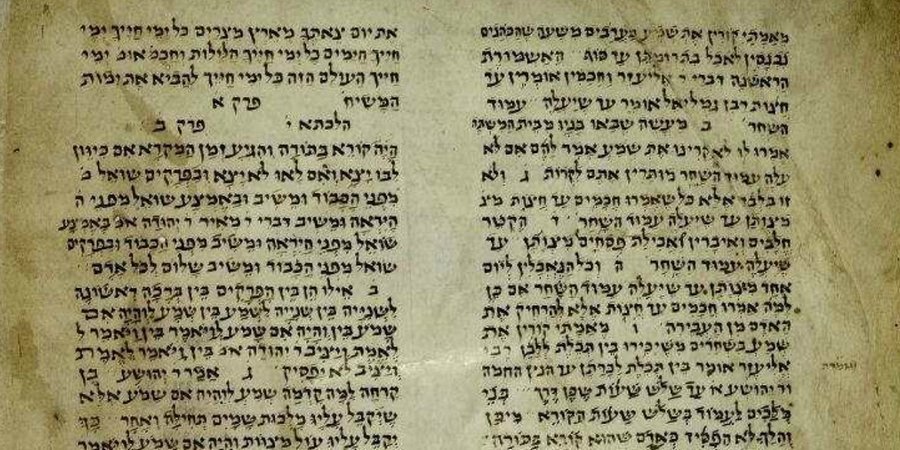 מאמתי קורין את שמע בערבים משעה שהכהנים
נכנסין לאכל בתרומתן עד סוף האשמורת
הראשנה דברי ר אליעזר וחכמין אומרין עד
חצות רבן גמליאל אומר עד שיעלה עמוד
השחר ב מעשה שבאו בניו מבית המשתה
אמרו לו לא קרינו את שמע אמר להם אם לא
עלה עמוד השחר מותרין אתם לקרות ג ולא
זו בלבד אלא כל שאמרו חכמים עד חצות מצ
מצותן עד שיעלה עמוד השחר ד הקטר
חלבים ואיברין ואכילת פסחים מצותן עד
שיעלה עמוד השחר ה וכל הנאכלין ליום
אחד מצותן עד שיעלה עמוד השחר אם כן
למה אמרו חכמים עד חצות אלא להרחיק את
האדם מן העבירה ו מאמתי קורין את
שמע בשחרים משיכירו בין תכלת ללבן רבי
אליעזר אומר בין תכלת לכרתן עד הנץ החמה
ור יהושע א עד שלש שעות שכן דרך בני
מלכים לעמוד בשלש שעות הקורא מיכן
והלך לא הפסיד כאדם שהוא קורא בתורה
את יום צאתך מארץ מצרים כל ימי חייך ימי
חייך הימים כל ימי חייך הלילות וחכמ אומ ימי
חייך העולם הזה כל ימי חייך להביא את ימות
המשיח פרק א
הלכתא י פרק ב
היה קורא בתורה והגיע זמן המקרא אם כיוון
לבו יצא ואם לאו לא יצא ובפרקים שואל מ
מפני הכבוד ומשיב ובאמצע שואל מפני ה
היראה ומשיב דברי ר מאיר ר יהודה אומ באמצע
שואל מפני היראה ומשיב מפני הכבוד ובפרקים
שואל מפני הכבוד ומשיב שלום לכל אדם
ב אילו הן בין הפרקים בין ברכה ראשונה
לשנייה בין שנייה לשמע בין שמע לוהיה אם
שמע בין והיה אם שמע לויאמר בין ויאמר ל
לאמת ויציב ר יהודה אומ בין ויאמר לאמת
ויציב לא יפסיק ג אמר ר יהושע בן
קרחה למה קדמה שמע לוהיה אם שמע אלא
שיקבל עליו מלכות שמים תחילה ואחר כך
יקבל עליו עול מצוות והיה אם שמע לויאמר